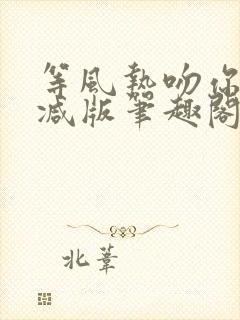 等風熱吻你
减版笔趣閣
北葦